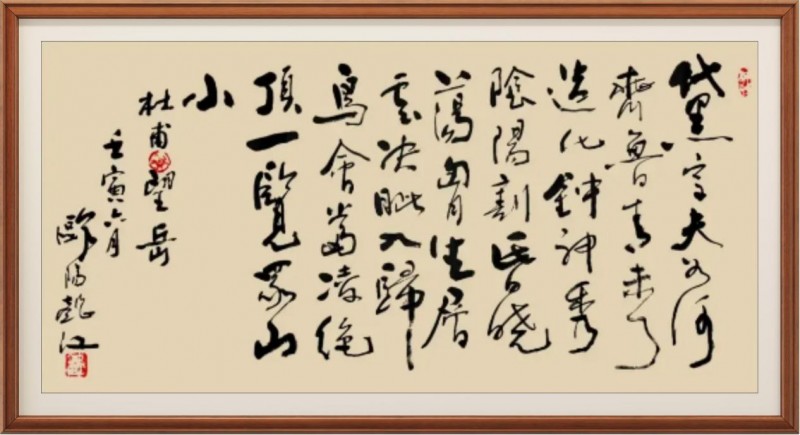 黛宗夫如何
齊魯青未了
造化鍾神秀
陰陽割昏曉
蕩胸生層
雲決眦入歸
鳥會當凌絕
頂一覽眾山
小
杜甫望岳
壬寅六月
歐陽